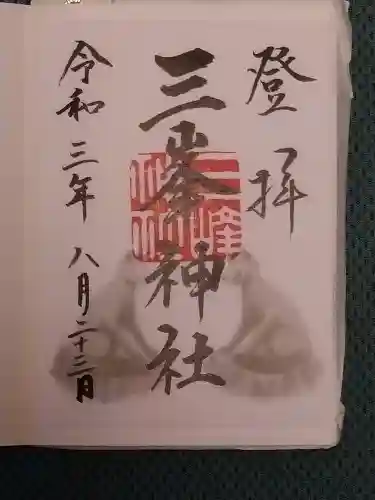 登拝
三峯神社
令和三年八月二十三日